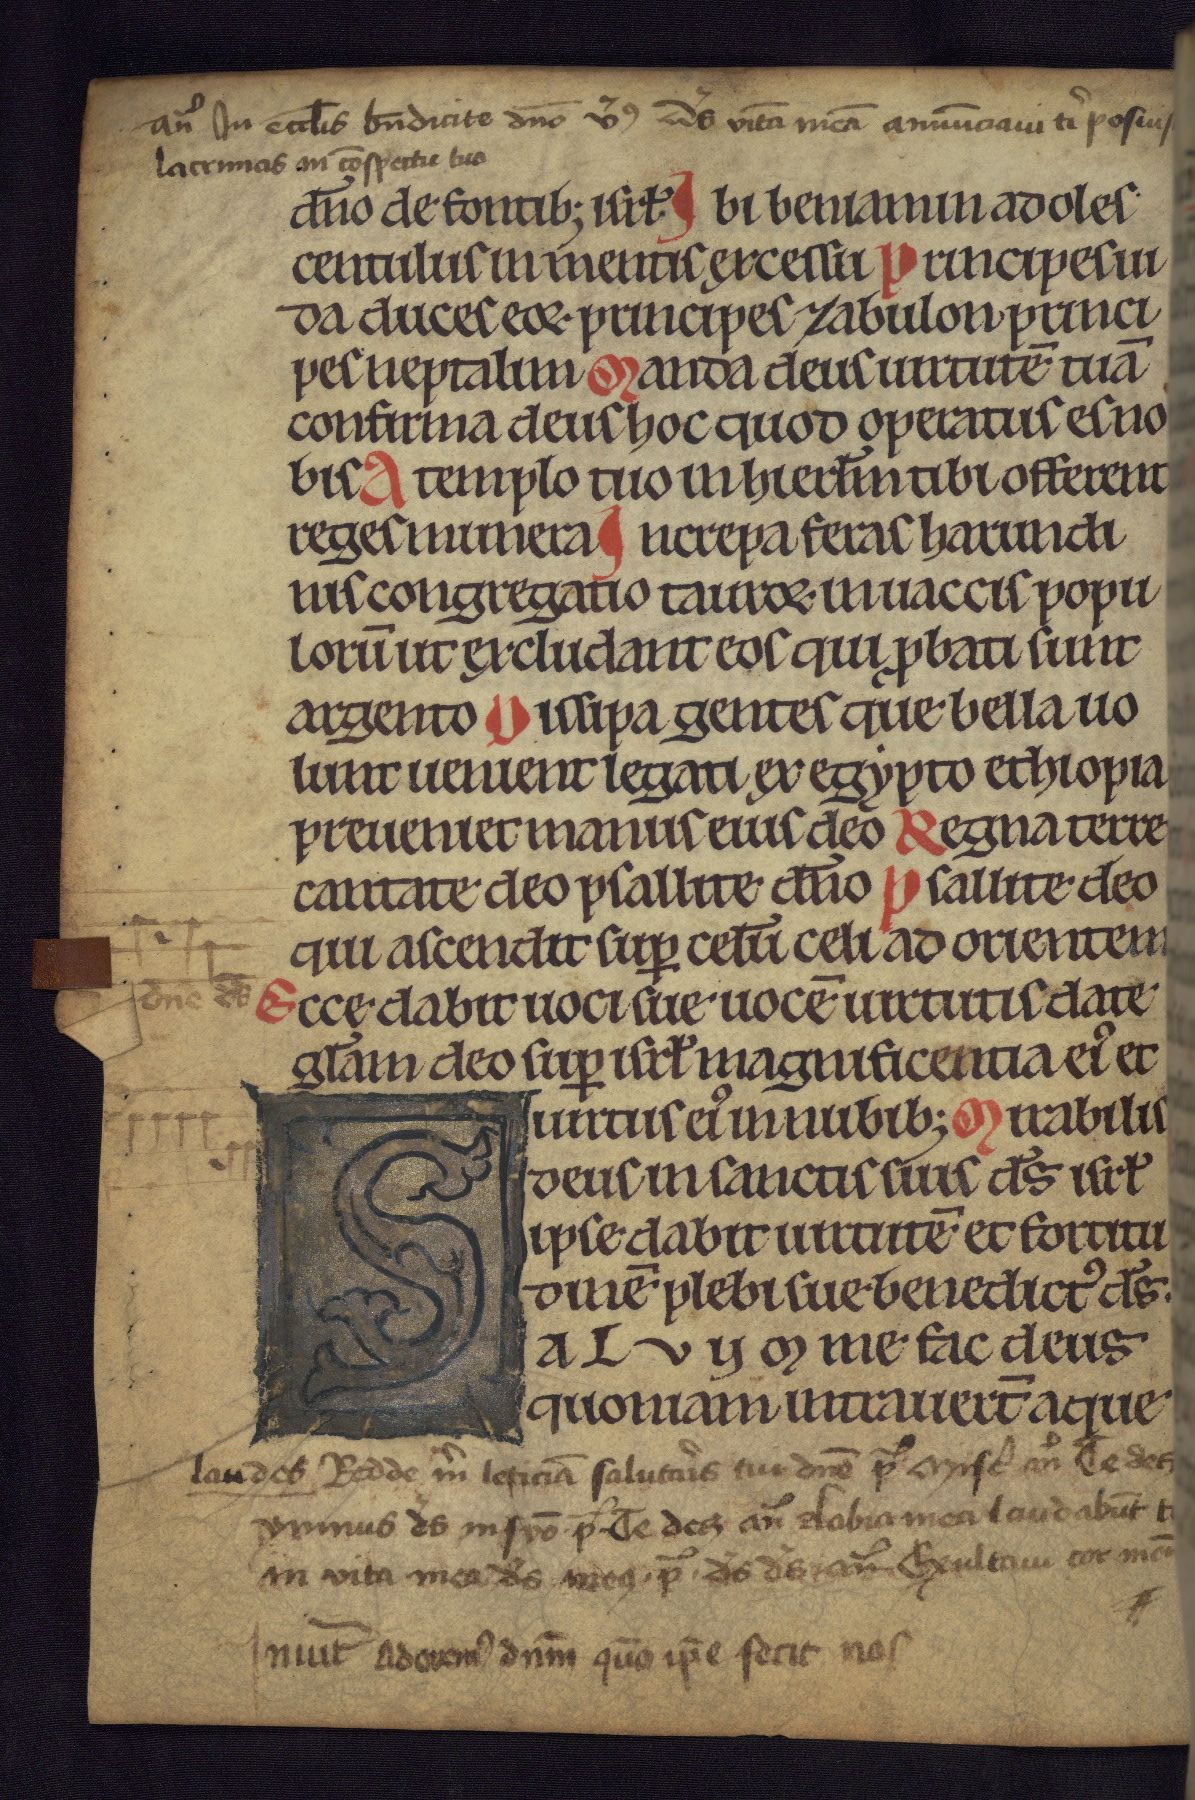 an̄ In eccl̄is bn̄dicite dn̄o v̄s d̄s vitā meā annūciaui ti posuis
lacrimas in cōspectu tuo
dn̄o de fontib; isrl̄ I bi beniamin adoles
centulus in mentis excessu Principes iu
da duces eoꝝ principes zabulon princi
pes neptalim Manda deus uirtutē tuā
confirma deus hoc quod operatus es no
bis A templo tuo in hierlm̄ tibi offerent
reges munera Increpa feras harundi
nis congregatio tauroꝝ in uaccis popu
lorū ut excludant eos qui ꝓbati sunt
argento Dissipa gentes que bella uo
lunt uenient legati ex egypto ethiopia
preueniet manus eius deo Regna terre
cantate deo psallite dn̄o Psallite deo
qui ascendit suꝑ celū celi ad orientem
dne ds
Ecce dabit uoci sue uocē uirtutis date
gl̄am deo suꝑ isrl̄ magnificentia ei᾽ et
uirtus ei᾽ in nubib; Mirabilis
deus in sanctis suis d̄s isrl̄
ipse dabit uirtutē et fortitu
dinē plebi sue benedict᾽ d̄s.
SALVUM me fac deus
quoniam intrauert̄ aque
laudes Redde m̄ leticiā salutar̄s tui dn̄e p̄s Mis͛ an̄ Te dec;
ymnus d̄s in syō p̄s Te dec; an̄ labia mea laudabūt t
in vita mea d̄s me᾽ p̄s d̄s d̄s an̄ Exultaui cor meū
Inuit̄ Adorem᾽ dn̄m qm̄ ip̄e fecit nos